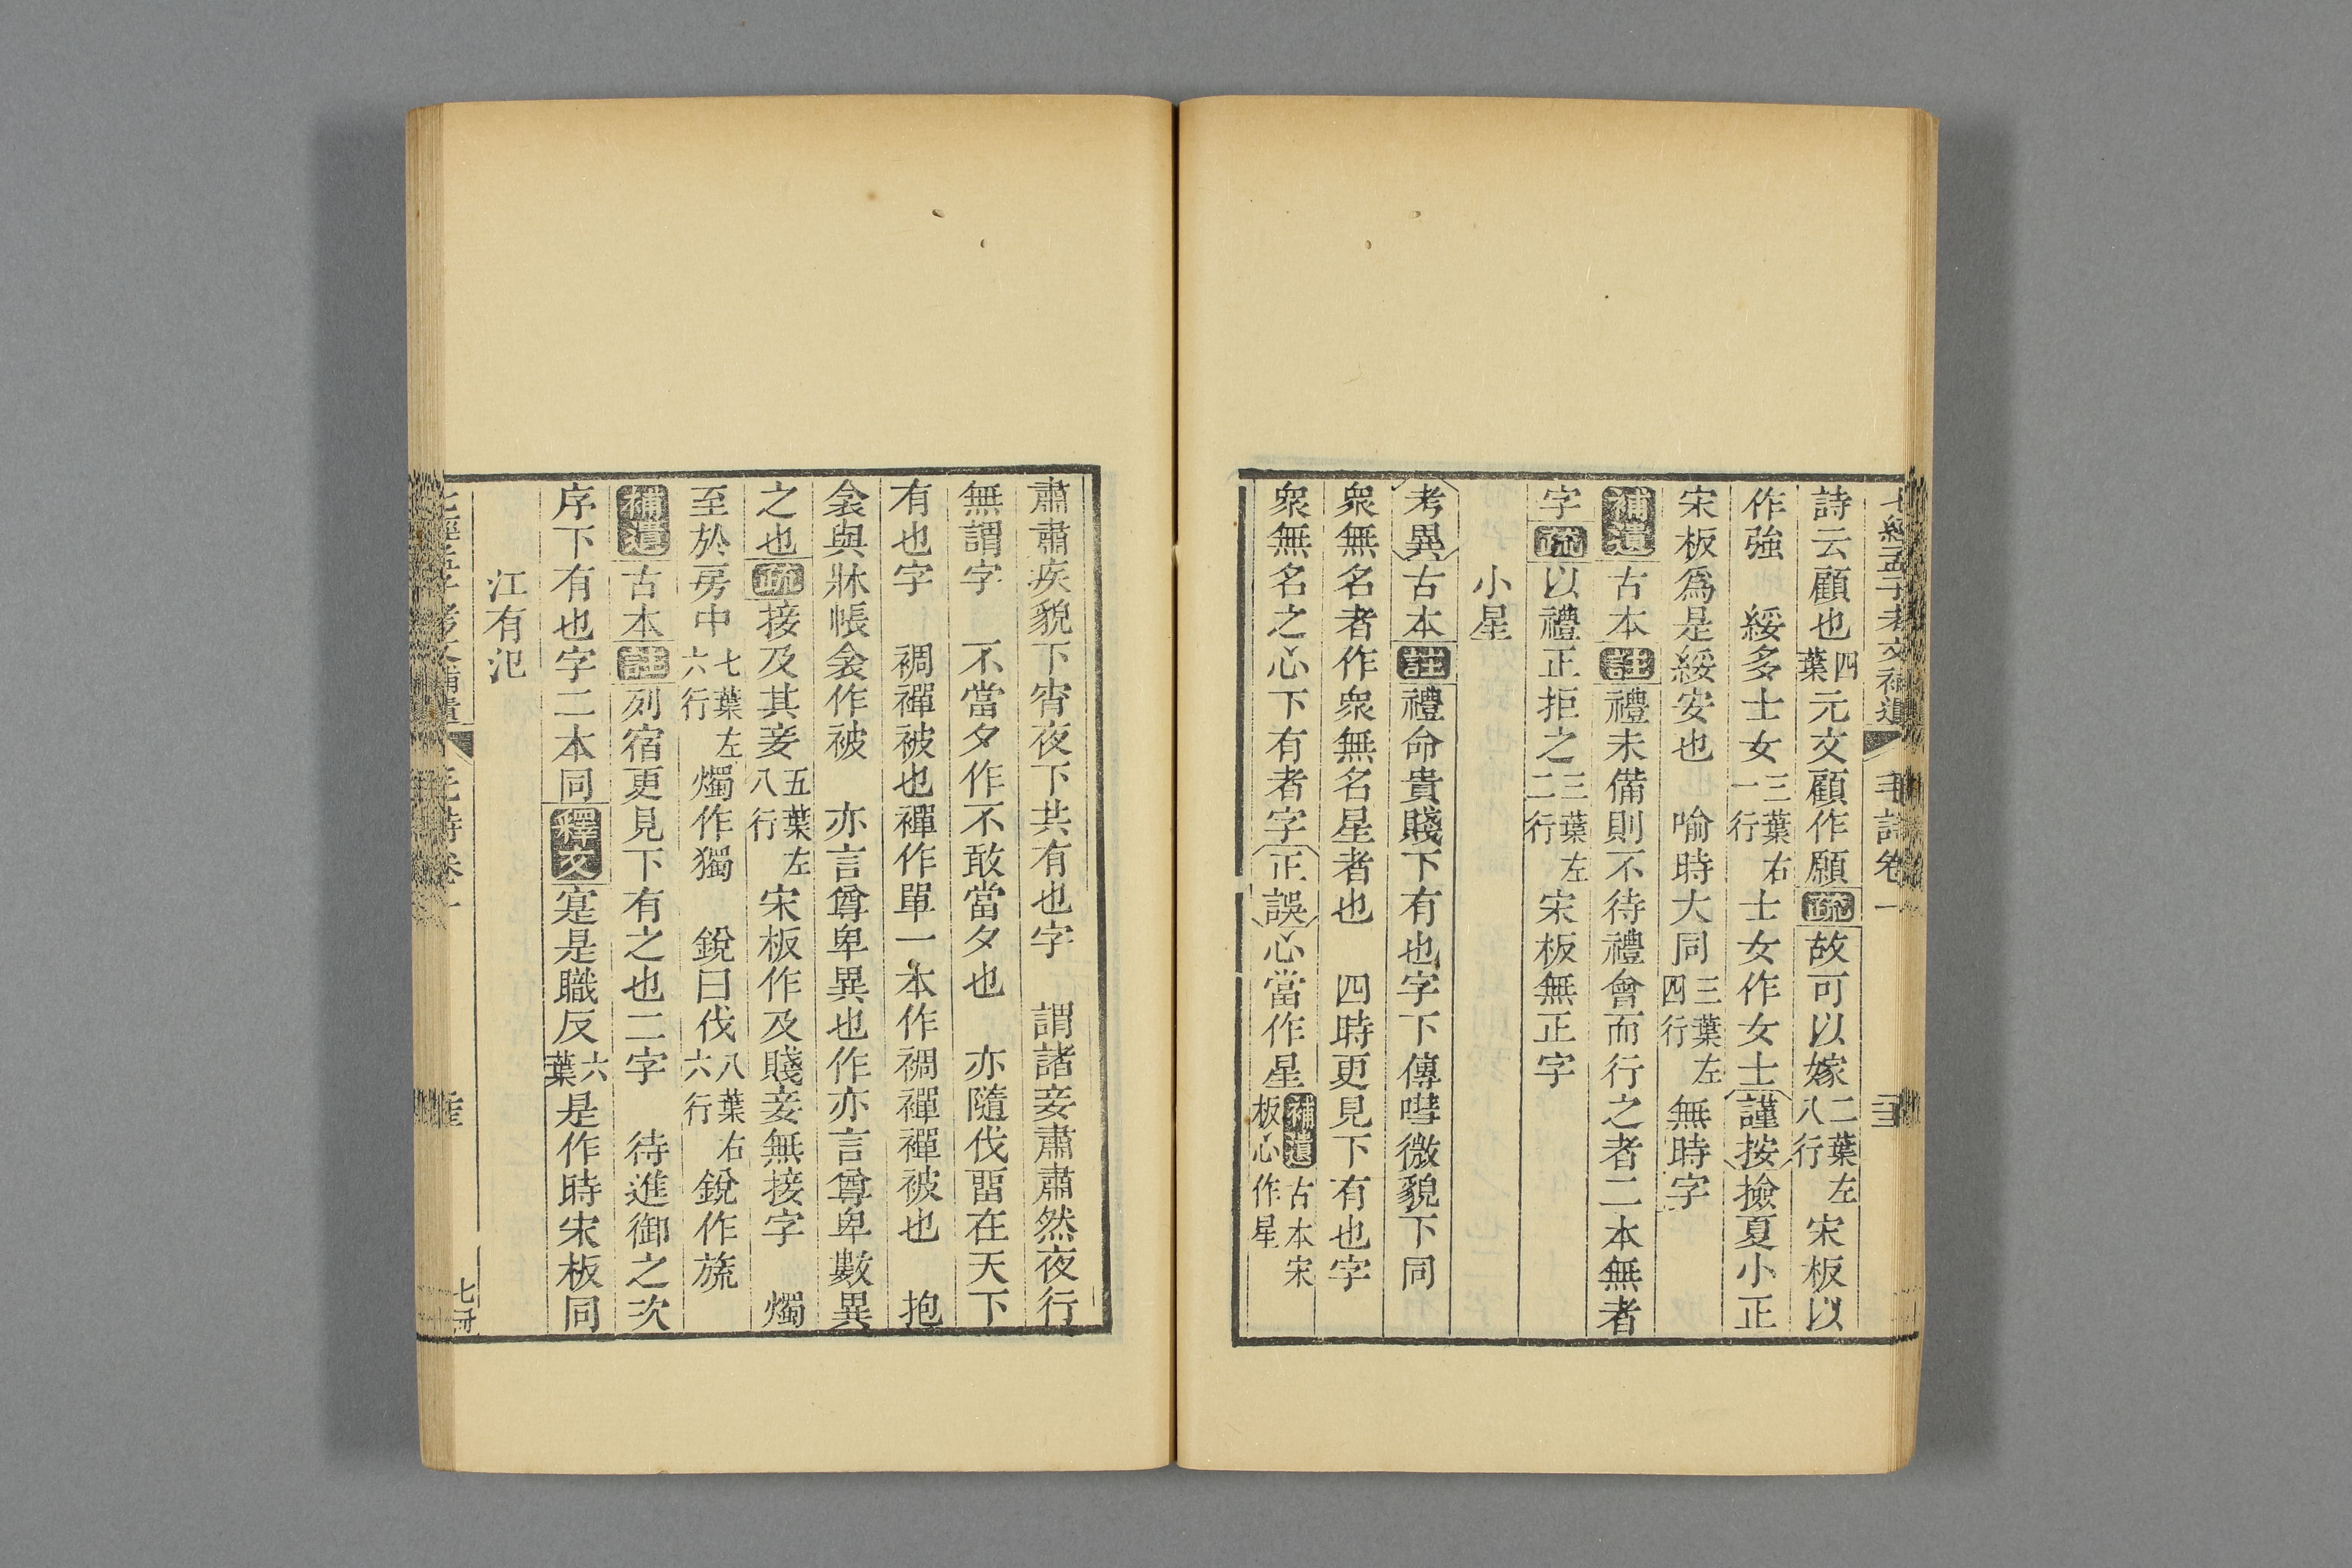 七經孟子考文補遺 毛詩卷一
詩云顧也四葉元文顧作願疏故可以嫁二葉左八行宋板以
作強 綏多士女三葉右一行士女作女士謹按撿夏小正
宋板爲是綏安也 喻時大同三葉左四行無時字
補遺古本註禮未備則不待禮會而行之者二本無者
字疏以禮正拒之三葉左二行宋板無正字
小星
考異古本註禮命貴賤下有也字下傳嘒微貌下同
衆無名者作衆無名星者也 四時更見下有也字
衆無名之心下有者字正誤心當作星補遺古本宋板心作星
肅肅疾貌下宵夜下共有也字 謂諸妾肅肅然夜行
無謂字 不當夕作不敢當夕也 亦隨伐畱在天下
有也字 裯襌被也襌作單一本作裯襌襌被也 抱
衾與牀帳衾作被 亦言尊卑異也作亦言尊卑數異
之也疏接及其妾五葉左八行宋板作及賤妾無接字 燭
至於房中七葉左六行燭作獨 銳曰伐八葉右六行銳作旒
補遺古本註列宿更見下有之也二字 待進御之次
序下有也字二本同釋文寔是職反六葉是作時宋板同
江有汜